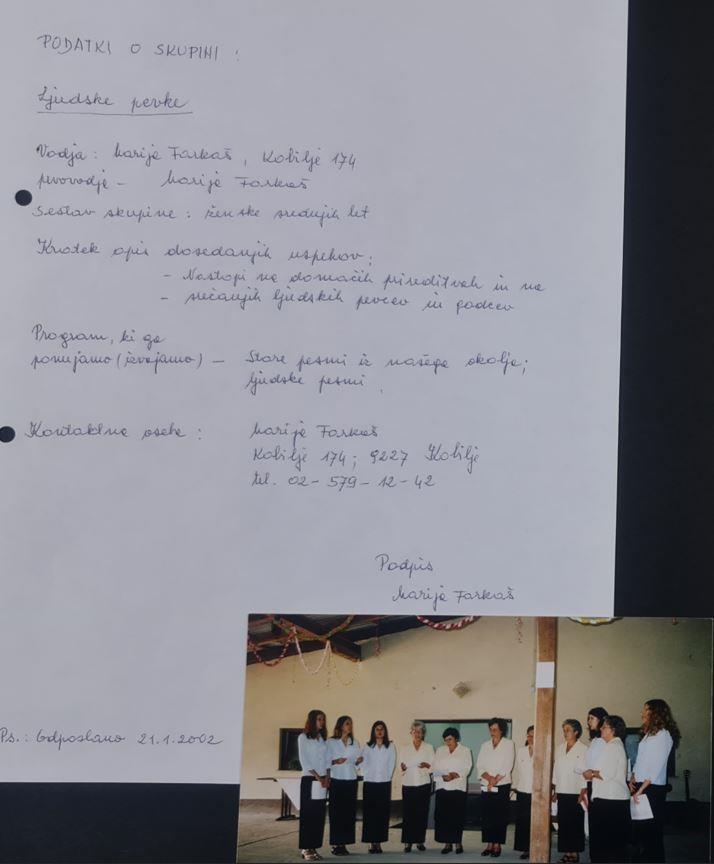 PODATKI O SKUPINI :
Ljudske pevke
Vodja : Marija Farkaš , Kobilje 174
pevovodja - Marija Farkaš
Sestav skupine : ženske srednjih let
Kratek opis dosedanjih uspehov :
- Nastopi na domačih prireditvah in na
- srečanjih ljudskih pevcev in godcev
Program, ki ga
ponujamo (izvajamo) - Stare pesmi iz našega okolja;
ljudske pesmi .
Kontaktna oseba : Marija Farkaš
Kobilje 174 ; 9227 Kobilje
tel. 02 - 579 - 12 - 42
Podpis
Marija Farkaš
Ps. : Odposlano 21.1.2002